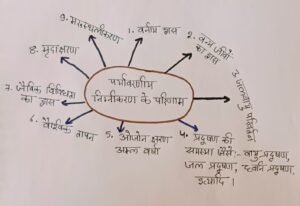 पर्यावरणीय
निम्नीकरण के परिणाम
1. वनीय ह्रास
2. वन्य जीवों
का ह्रास
3. जलवायु परिवर्तन
4. प्रदूषण की
समस्या जैसे:- वायु प्रदूषण,
जल प्रदूषण, ध्वनि प्रदूषण,
इत्यादि।
5. ओजोन क्षरण
अम्ल वर्षा
6. वैश्विक तापन
7. जैविक विविधता
का ह्रास
8. मृदाक्षरण
9. मरुस्थलीकरण